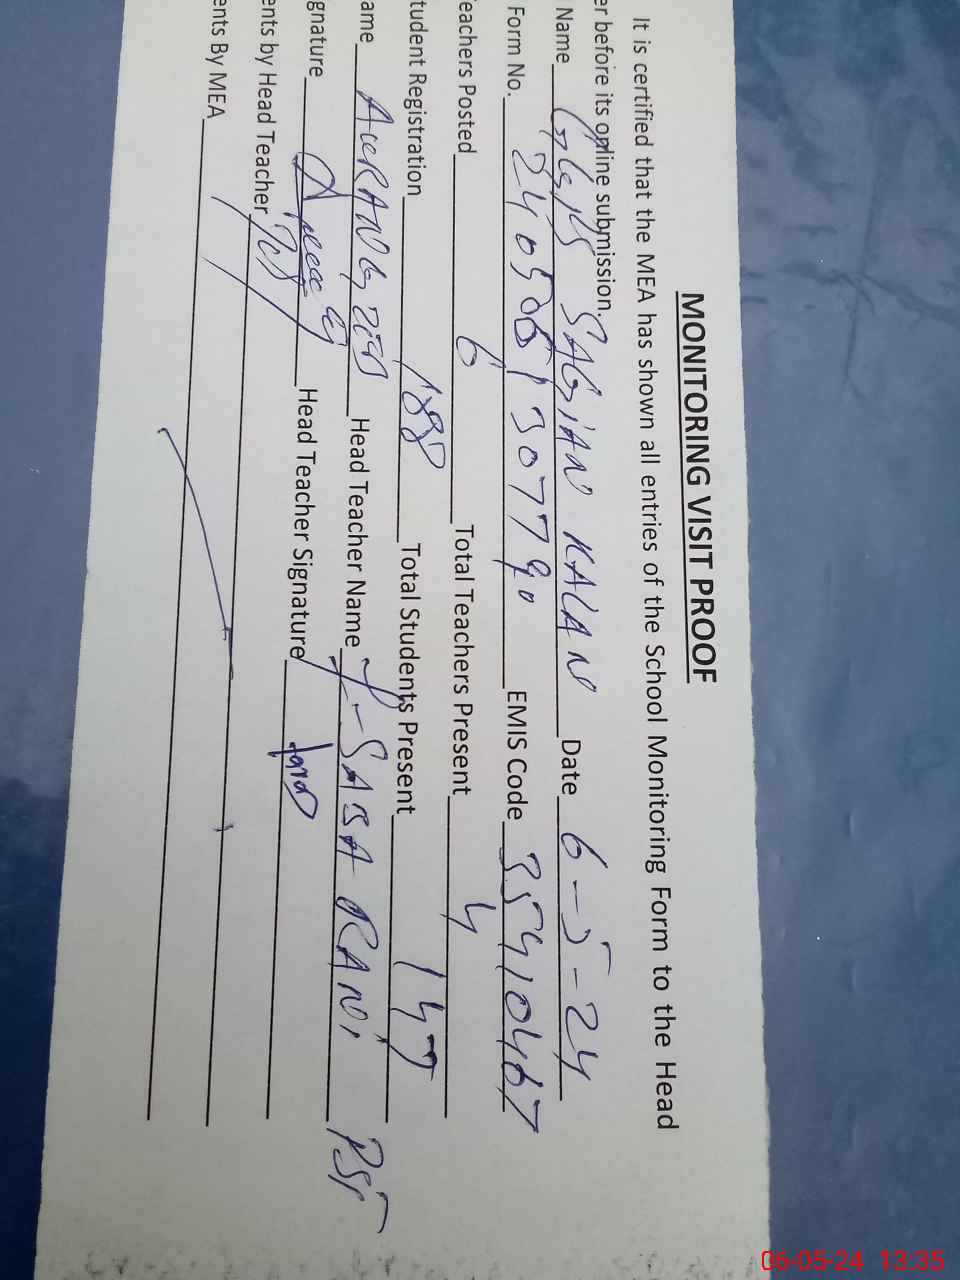 MONITORING VISIT PROOF
It is certified that the MEA has shown all entries of the School Monitoring Form to the Head
er before its online submission.
Name SAGIAN KALAN Date 6-5-24
Form No. EMIS Code 35410467
eachers Posted 6 Total Teachers Present 4
tudent Registration 188 Total Students Present 147
ame Head Teacher Name SABA RANI PST
gnature Head Teacher Signature
ents by Head Teacher
ents By MEA
06-05-24 13:35